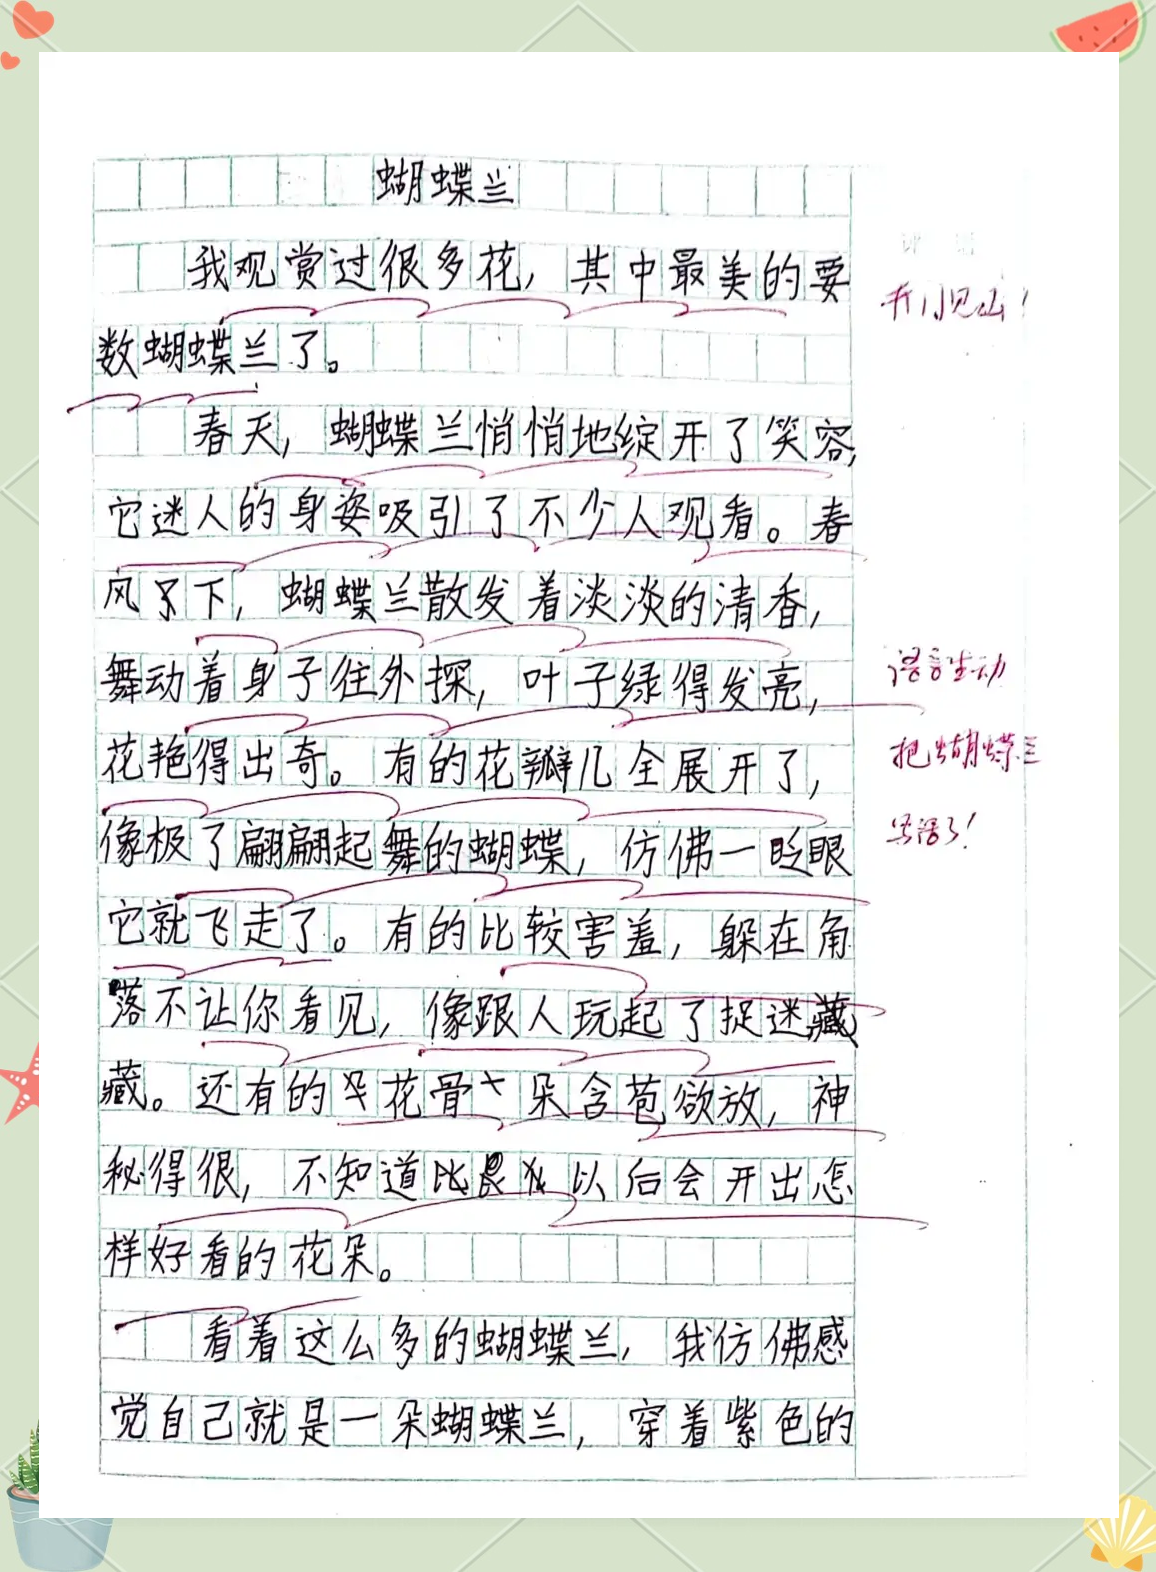 蝴蝶兰
我观赏过很多花，其中最美的要
开门见山！
数蝴蝶兰了。
春天，蝴蝶兰悄悄地绽开了笑容，
它迷人的身姿吸引了不少人观看。春
风下，蝴蝶兰散发着淡淡的清香，
舞动着身子往外探，叶子绿得发亮，
语言生动
花艳得出奇。有的花瓣儿全展开了，
把蝴蝶兰
像极了翩翩起舞的蝴蝶，仿佛一眨眼
写活了！
它就飞走了。有的比较害羞，躲在角
落不让你看见，像跟人玩起了捉迷藏
藏。还有的花骨朵含苞欲放，神
秘得很，不知道以后会开出怎
样好看的花朵。
看着这么多的蝴蝶兰，我仿佛感
觉自己就是一朵蝴蝶兰，穿着紫色的